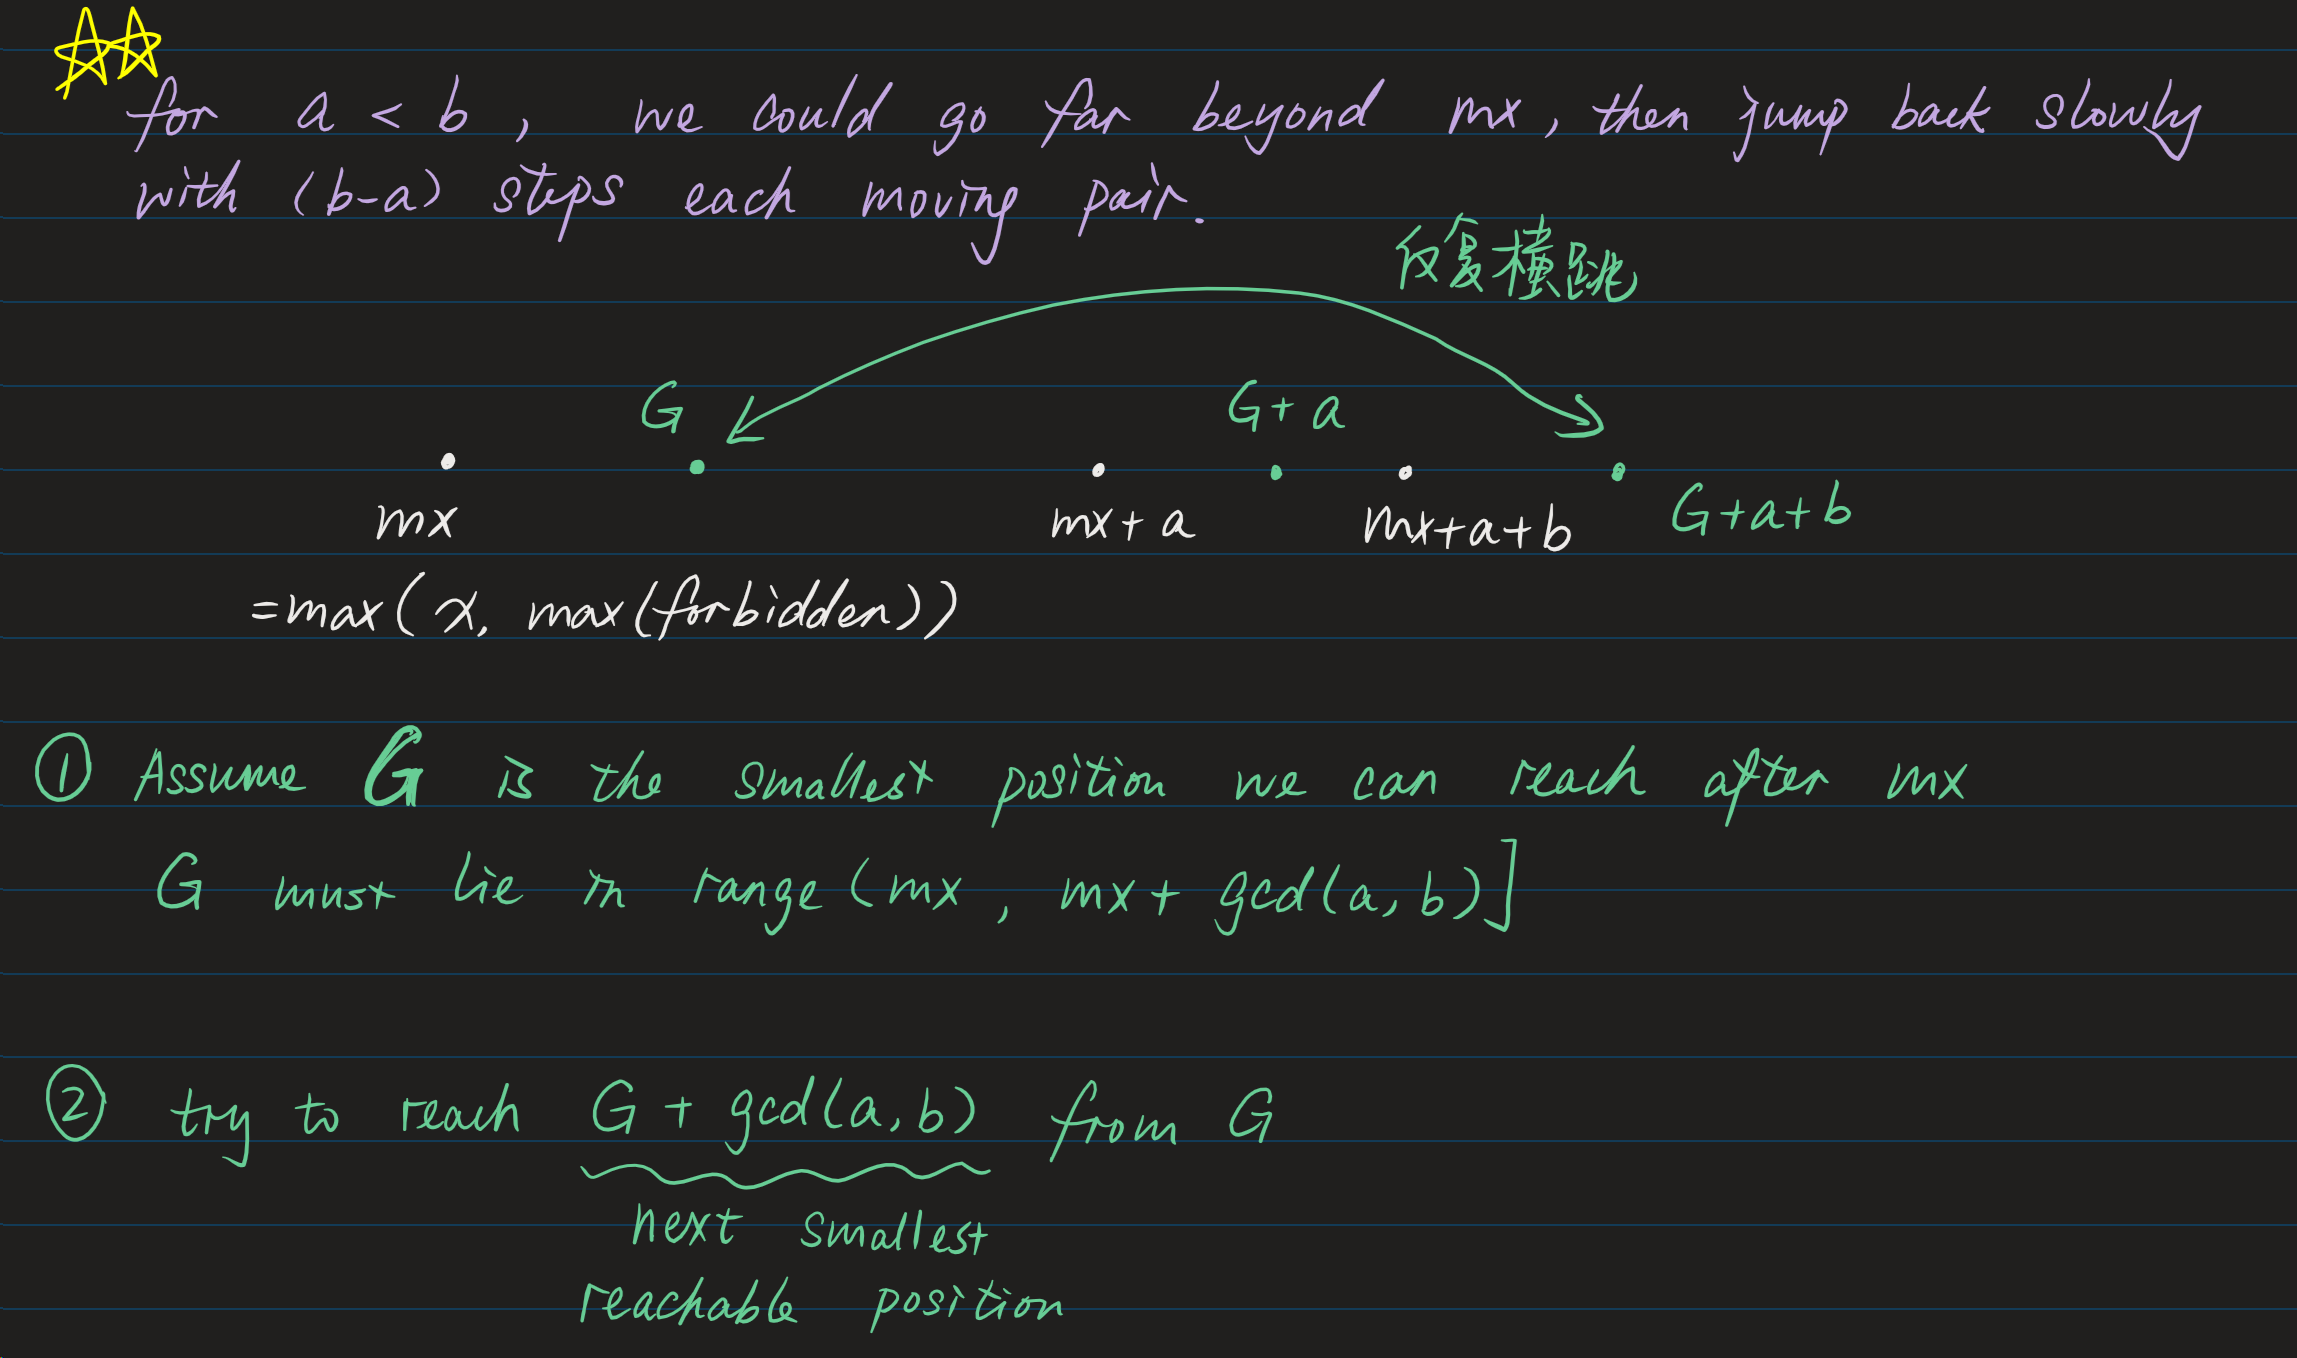 for a < b, we could go far beyond mx, then jump back slowly
with (b-a) steps each moving pair.
反复横跳
G G+a
mx mx+a mx+a+b G+a+b
=max(x, max(forbidden))
① Assume G is the smallest position we can reach after mx
G must lie in range (mx, mx+ gcd(a,b)]
② try to reach G + gcd(a,b) from G
next smallest
reachable position